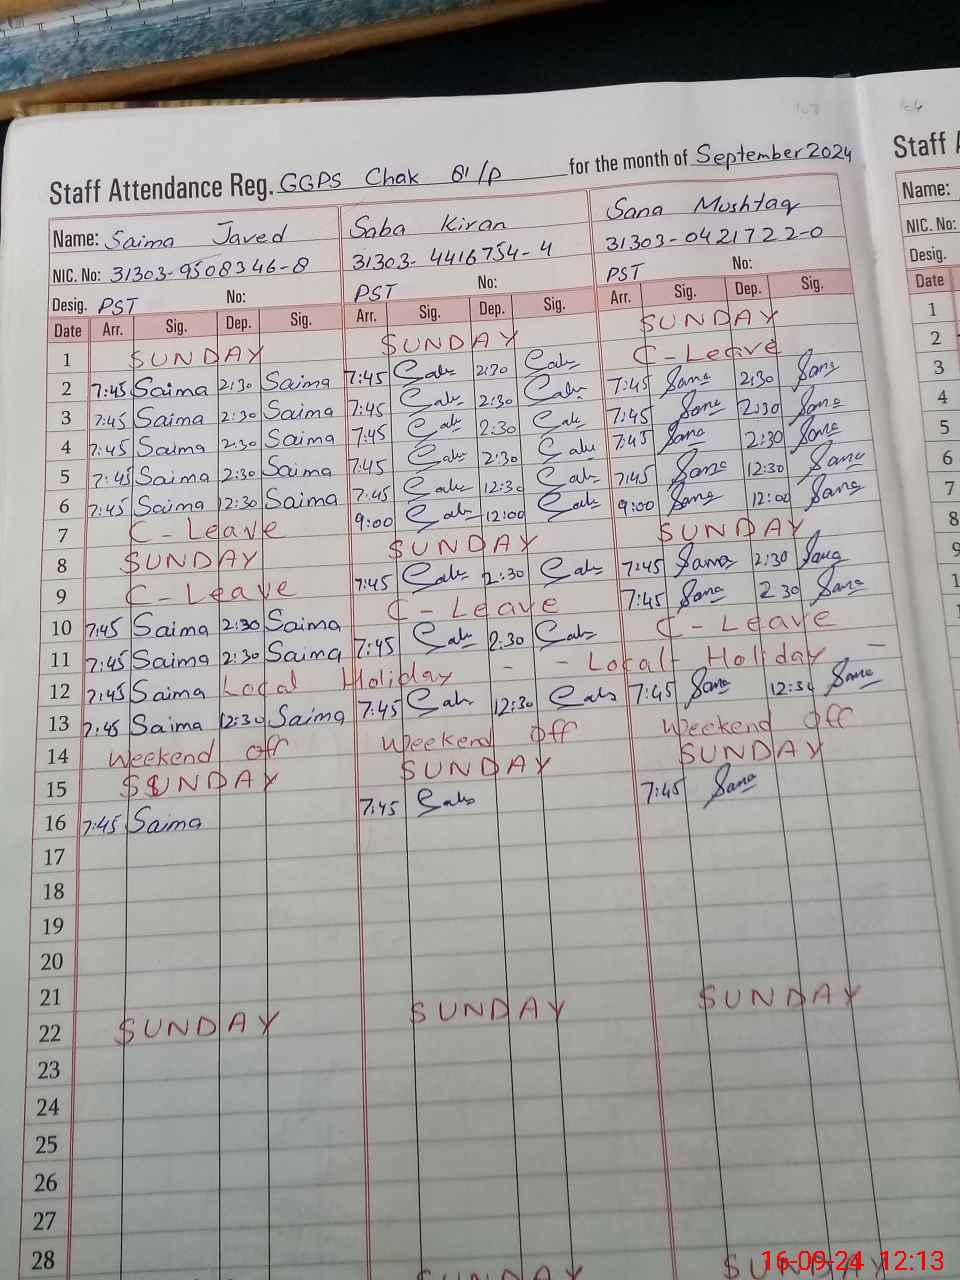 103
104
Staff Attendance Reg. GGPS Chak 81/P for the month of September 2024
Staff
Name: Saima Javed Saba Kiran Sana Mushtaq
Name:
NIC. No: 31303-9508346-8 31303-4416754-4 31303-0421722-0
NIC. No:
Desig. PST No: PST No: PST No:
Desig.
Date Arr. Sig. Dep. Sig. Arr. Sig. Dep. Sig. Arr. Sig. Dep. Sig.
Date
1 SUNDAY SUNDAY SUNDAY
2 7:45 Saima 2:30 Saima 7:45 Saba 2:30 Saba C-Leave
3 7:45 Saima 2:30 Saima 7:45 Saba 2:30 Saba 7:45 Sana 2:30 Sana
4 7:45 Saima 2:30 Saima 7:45 Saba 2:30 Saba 7:45 Sana 2:30 Sana
5 7:45 Saima 2:30 Saima 7:45 Saba 2:30 Saba 7:45 Sana 2:30 Sana
6 7:45 Saima 12:30 Saima 7:45 Saba 12:30 Saba 7:45 Sana 12:30 Sana
7 C-Leave 9:00 Saba 12:00 Saba 9:00 Sana 12:00 Sana
8 SUNDAY SUNDAY SUNDAY
9 C-Leave 7:45 Saba 2:30 Saba 7:45 Sana 2:30 Sana
10 7:45 Saima 2:30 Saima C-Leave 7:45 Sana 2 30 Sana
11 7:45 Saima 2:30 Saima 7:45 Saba 2:30 Saba C-Leave
12 7:45 Saima Local Holiday - - Local Holiday -
13 7:45 Saima 12:30 Saima 7:45 Saba 12:30 Saba 7:45 Sana 12:30 Sana
14 Weekend Off Weekend Off Weekend Off
15 SSUNDAY SUNDAY SUNDAY
16 7:45 Saima 7:45 Saba 7:45 Sana
17
18
19
20
21
22 SUNDAY SUNDAY SUNDAY
23
24
25
26
27
28
SUNDAY SUNDAY
1
2
3
4
5
6
7
8
9
16-09-24 12:13